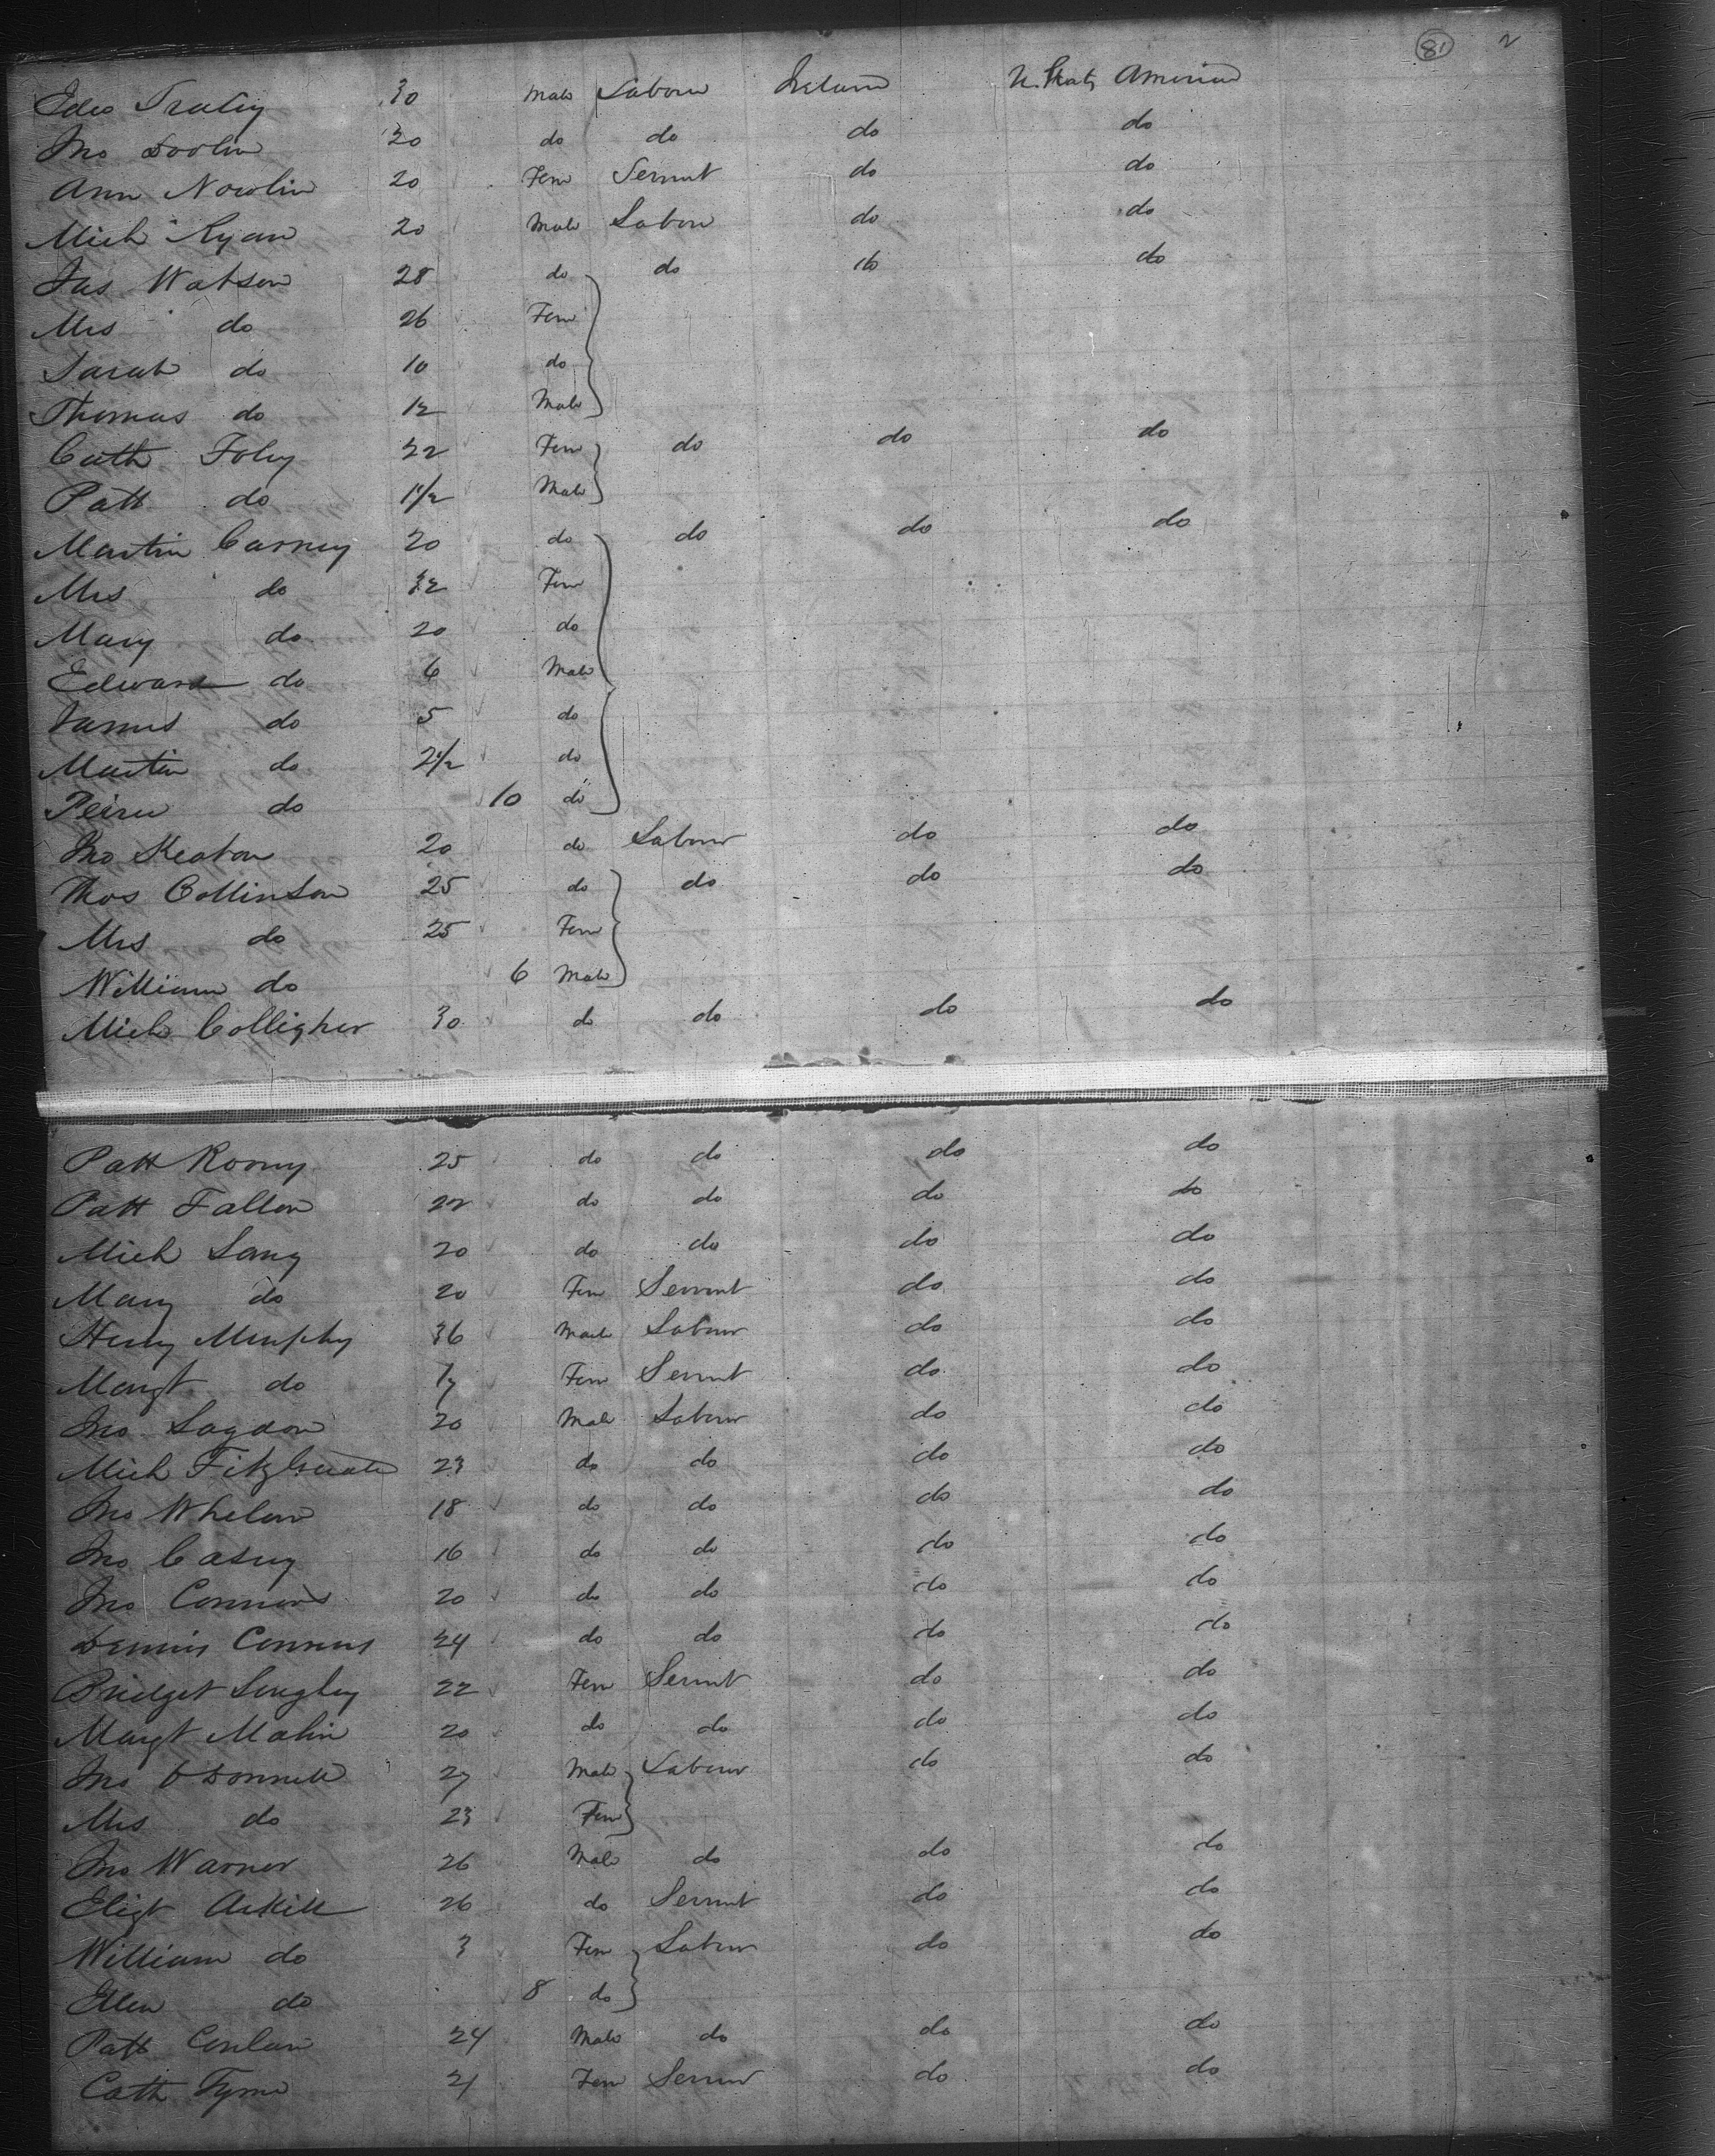 81 2
Edw 30 Male Labour Ireland U. States America
Jno Doolin 30 do do do do
Ann Nowlin 20 Fem Servnt do do
Mich Ryan 20 Male Labour do do
Jas Watson 28 do do do do
Mrs do 26 Fem
Sarah do 10 do
Thomas do 12 Male
Cath Foley 22 Fem do do do
Patt do 1 1/2 Male
Martin Carney 20 do do do do
Mrs do 32 Fem
Mary do 20 do
Edward do 6 Male
James do 5 do
Martin do 2 1/2 do
do 10 do
Jno Keaton 20 do Labour do do
Thos Collinson 25 do do do do
Mrs do 25 Fem
William do 6 Male
Mich Colligher 30 do do do do
Patt Roony 25 do do do do
Patt Fallon 22 do do do do
Mich Lang 20 do do do do
Mary do 20 Fem Servnt do do
Henry Murphy 36 Male Labour do do
Margt do 17 Fem Servnt do do
Jno Lagdon 20 Male Labour do do
Mich 23 do do do do
Jno Whelan 18 do do do do
Jno Casey 16 do do do do
Jno Connors 20 do do do do
Dennis Connors 24 do do do do
Bridget Longley 22 Fem Servnt do do
Margt Malin 20 do do do do
Jno O'Donnell 27 Male Labour do do
Mrs do 23 Fem
Jno Warner 26 Male do do do
Elizt Askill 26 do Servnt do do
William do 3 Fem Labour do do
Ellen do 8 do
Patt Conlan 24 Male do do do
Cath 21 Fem Servnt do do